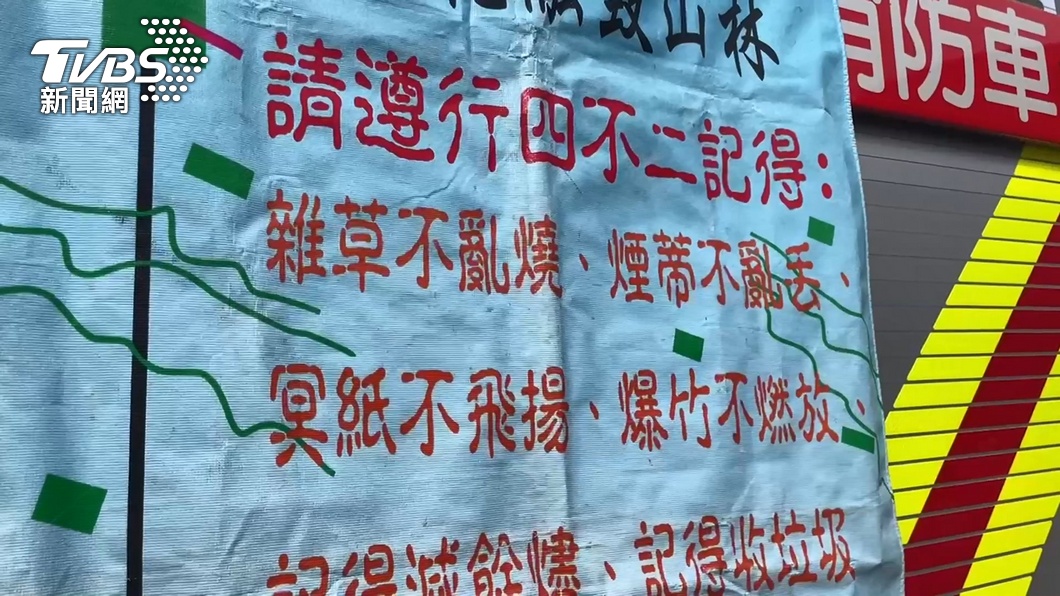 TVBS
新聞網
山林
消防車
請遵行四不二記得：
雜草不亂燒、煙蒂不亂丟、
冥紙不飛揚、爆竹不燃放、
記得滅餘燼、記得收垃圾